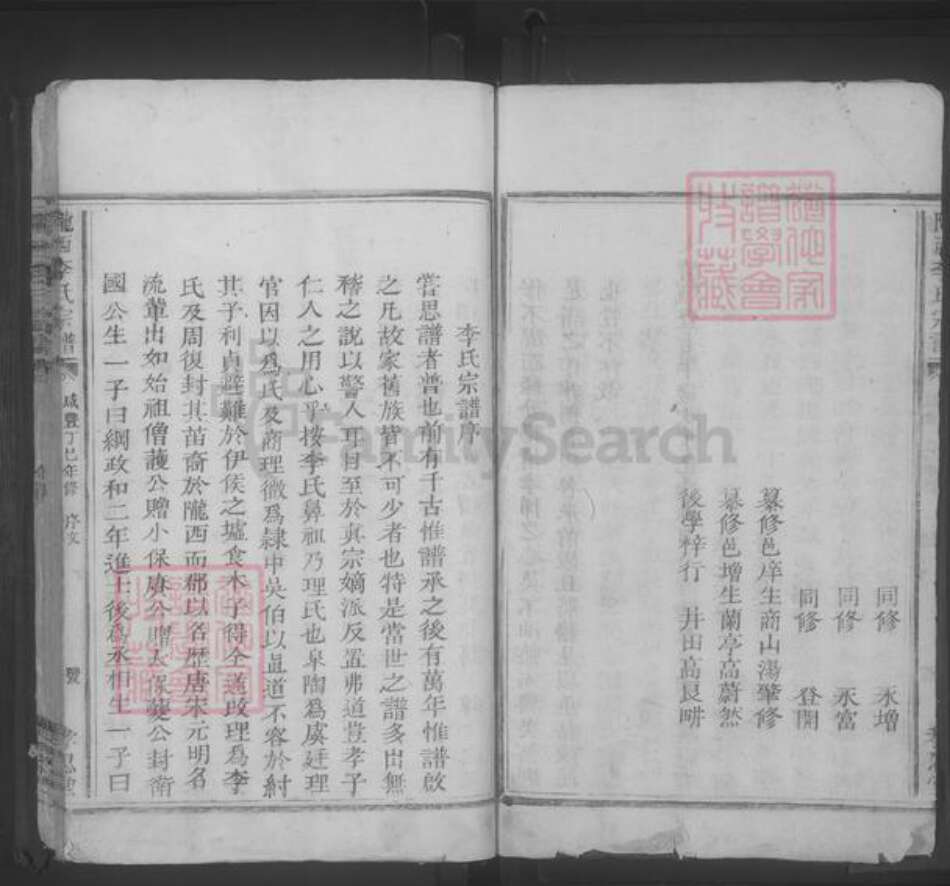 同修　永增
同修　永富
同修　登開
纂修邑庠生商山湯肇修
纂修邑增生蘭亭高蔚然
後學梓行　井田高艮畊
李氏宗譜序
嘗思譜者普也前有千古惟譜承之後有萬年惟譜啟
之凡故家舊族皆不可少者也特是當世之譜多出無
稽之說以警人耳目至於真宗嫡派反置弗道豈孝子
仁人之用心乎按李氏鼻祖乃理氏也皐陶為虞廷理
官因以為氏及商理徵為隸中吳伯以直道不容於紂
其子利貞避難於伊侯之墟食木子得全遂改理為李
氏及周復封其苗裔於隴西而郡以名歷唐宋元明名
流輩出如始祖僧護公贈小保賡公贈太保夔公封衛
國公生一子曰綱政和二年進士後為丞相生一子曰
隴西李氏宗譜
咸豐丁巳年修　序文
FamilySearch